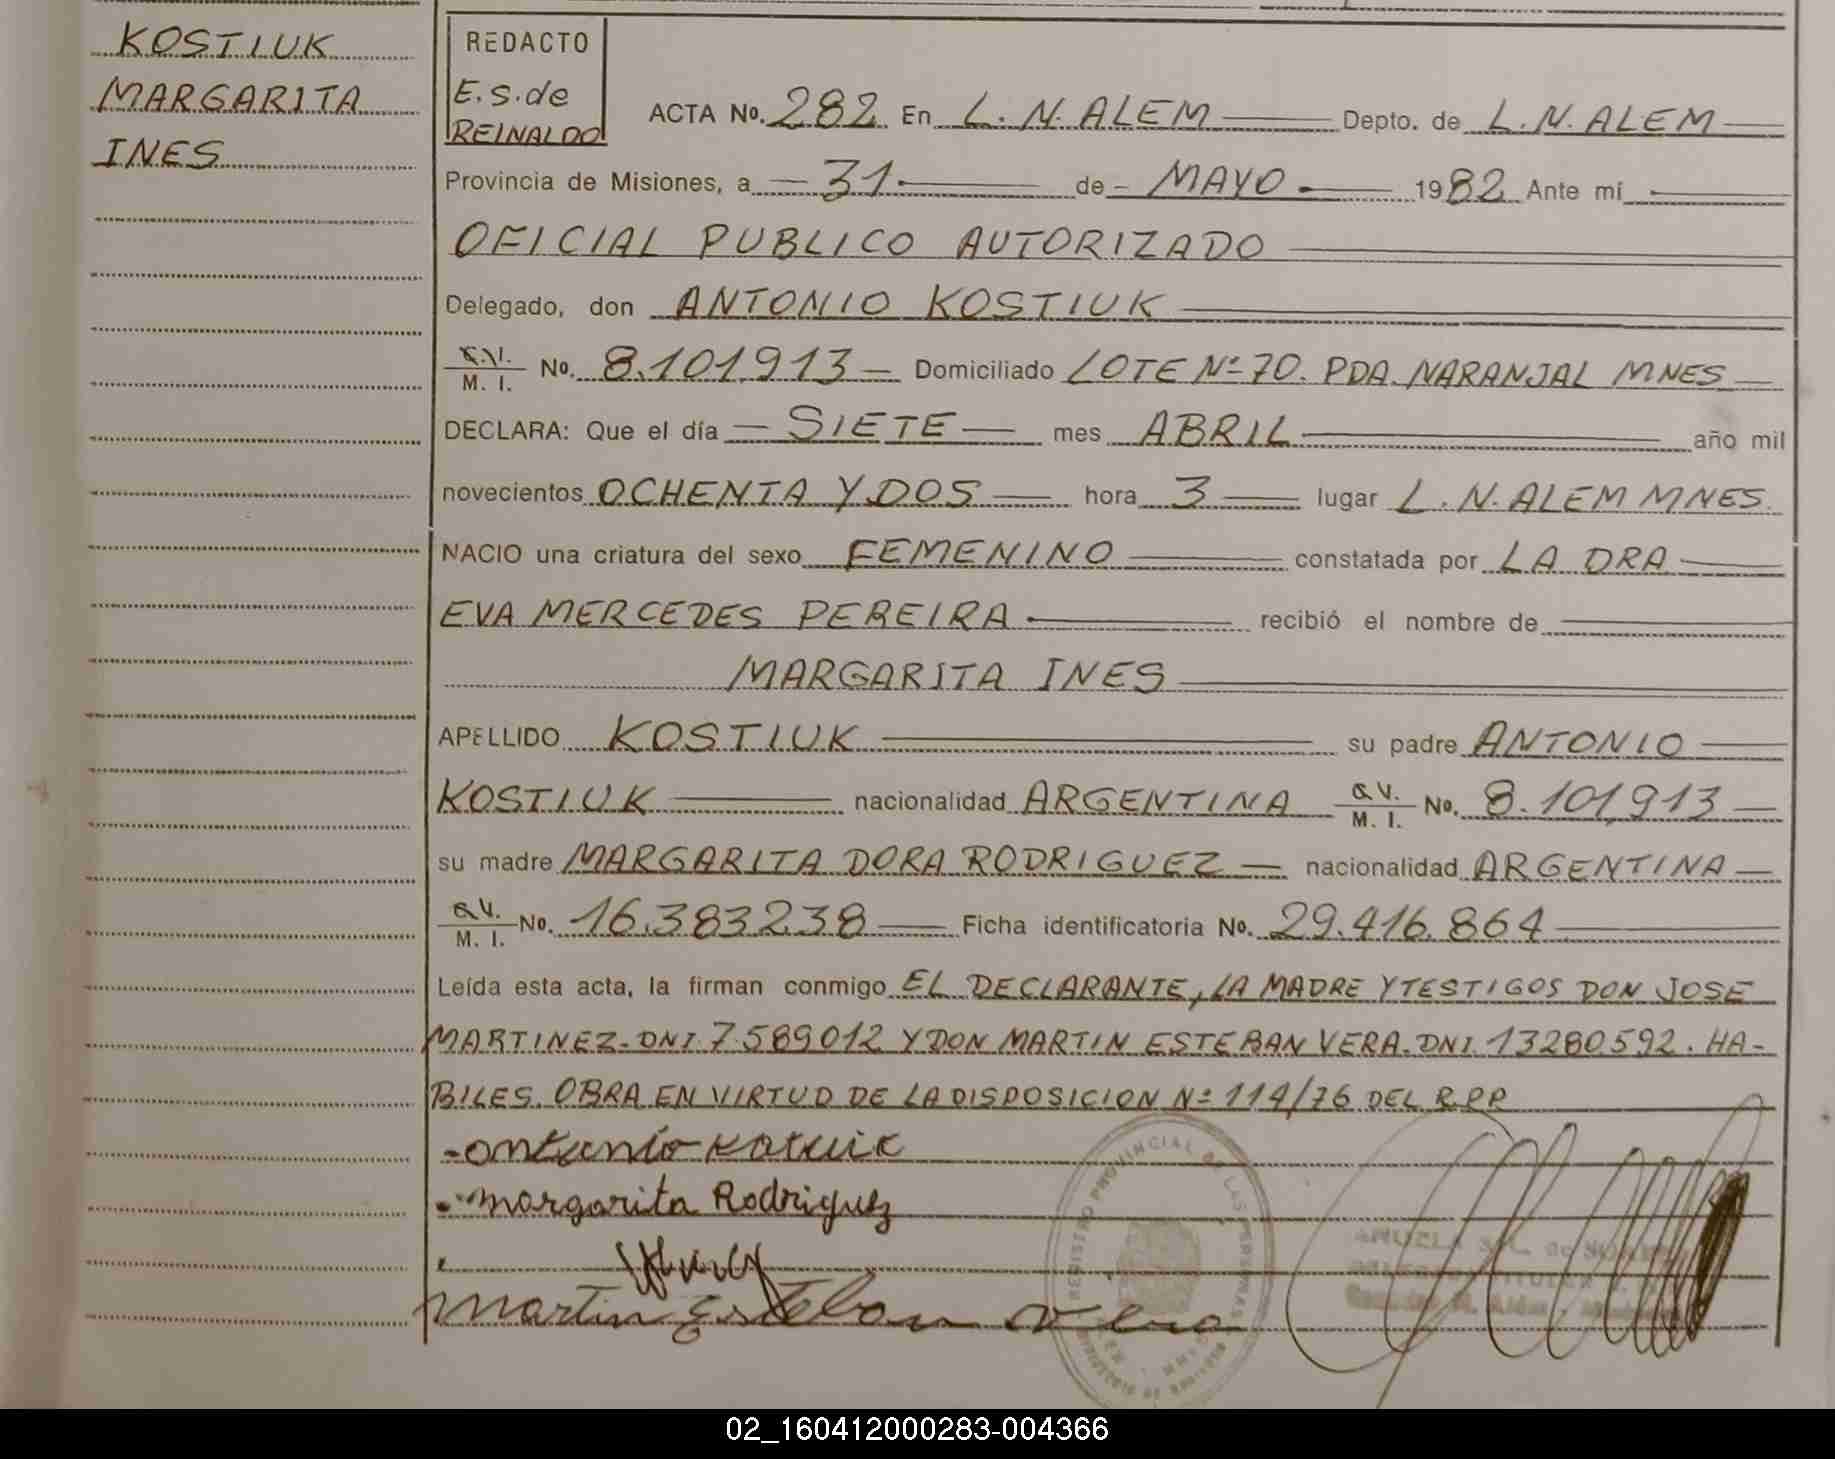 KOSTIUK
MARGARITA
INES
REDACTO
E.S. de
REINALDO
ACTA No. 282 En L. N. ALEM Depto. de L. N. ALEM
Provincia de Misiones, a 31 de MAYO 1982 Ante mí
OFICIAL PUBLICO AUTORIZADO
Delegado, don ANTONIO KOSTIUK
M. I. No. 8.101.913 Domiciliado LOTE Nº 70. PDA. NARANJAL MNES
DECLARA: Que el día SIETE mes ABRIL año mil
novecientos OCHENTA Y DOS hora 3 lugar L. N. ALEM MNES.
NACIO una criatura del sexo FEMENINO constatada por LA DRA
EVA MERCEDES PEREIRA recibió el nombre de
MARGARITA INES
APELLIDO KOSTIUK su padre ANTONIO
KOSTIUK nacionalidad ARGENTINA M. I. No. 8.101.913
su madre MARGARITA DORA RODRIGUEZ nacionalidad ARGENTINA
M. I. No. 16.383.238 Ficha identificatoria No. 29.416.864
Leída esta acta, la firman conmigo EL DECLARANTE, LA MADRE Y TESTIGOS DON JOSE
MARTINEZ. DNI. 7.589.012 Y DON MARTIN ESTEBAN VERA. DNI. 13280.592. HA-
BILES. OBRA EN VIRTUD DE LA DISPOSICION Nº 114/76 DEL R.P.P
margarita Rodriguez
martin Esteban Vera
REGISTRO PROVINCIAL DE LAS PERSONAS
02_160412000283-004366